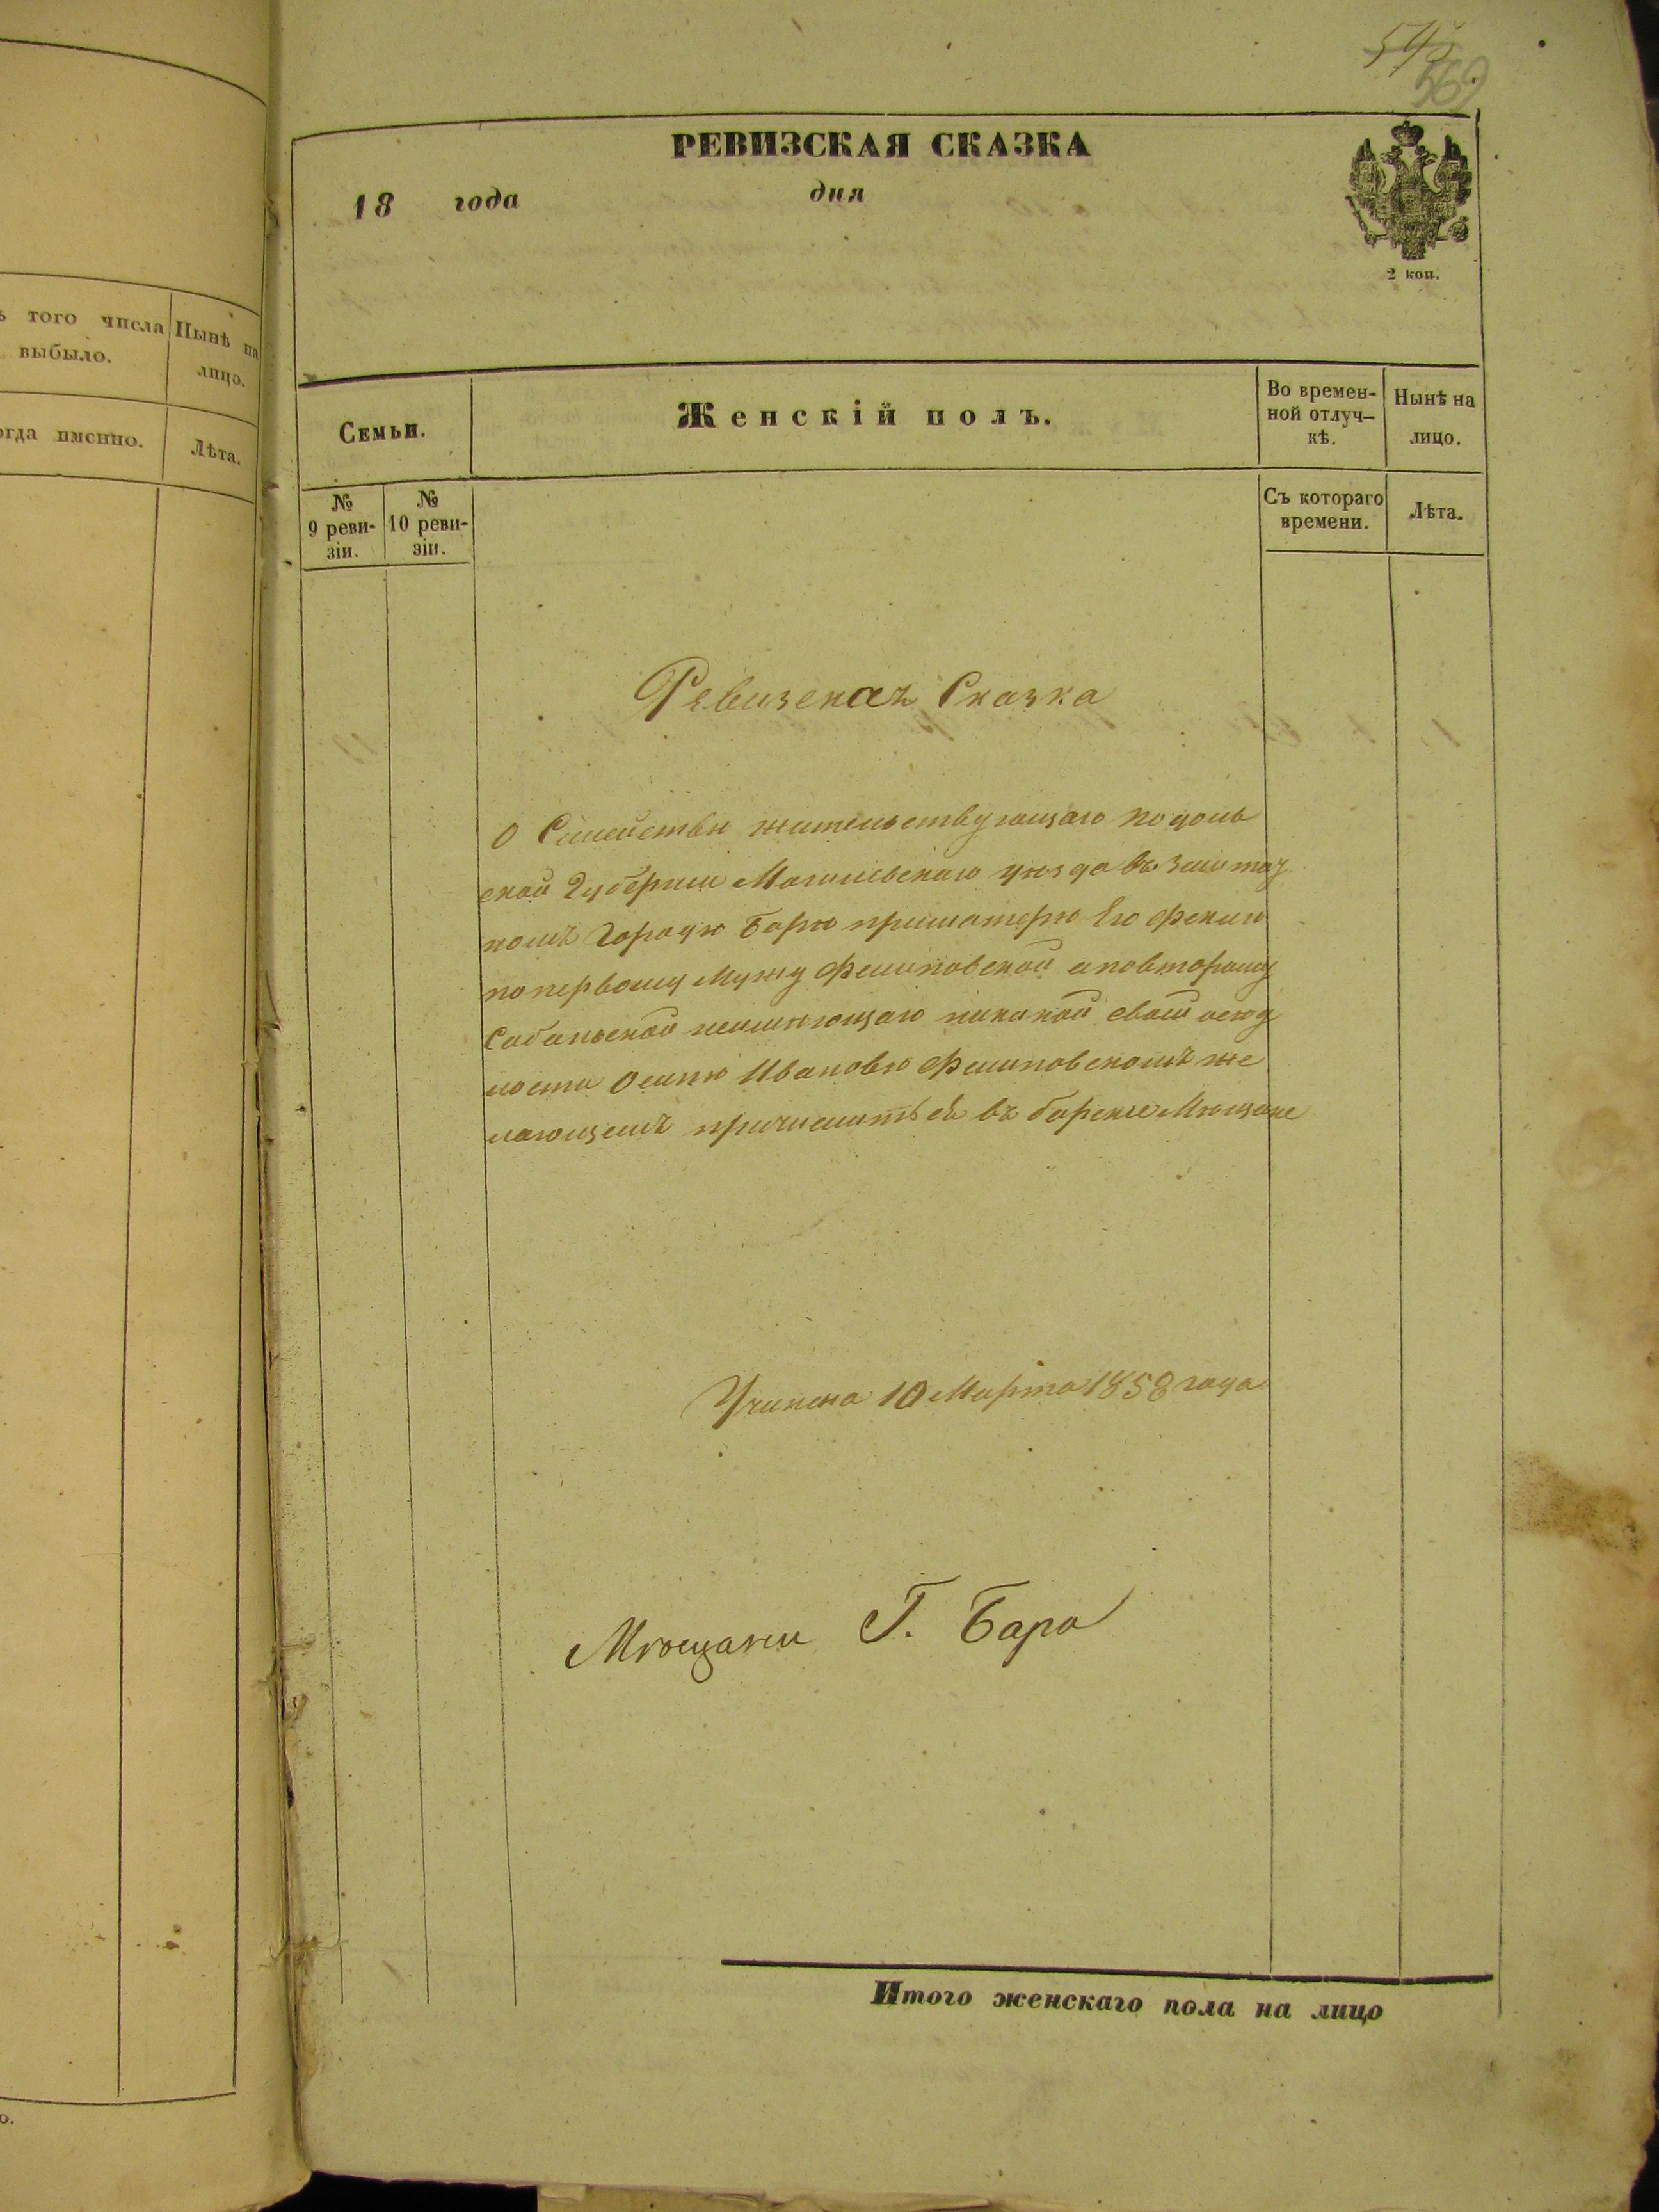 545
569
РЕВИЗСКАЯ СКАЗКА
18 года дня
2 коп.
ъ того числа
выбыло.
Нынѣ на
лицо.
огда именно.
Лѣта.
Семьи.
Женскій полъ.
Во времен-
ной отлуч-
кѣ.
Нынѣ на
лицо.
№
9 реви-
зіи.
№
10 реви-
зіи.
Съ котораго
времени.
Лѣта.
Ревизскаѧ Сказка
О Семействѣ жительствующаго Подоль
ской Губерніи Могилевскаго уѣзда въ Заштат
номъ Городѣ Барѣ приматерѣ Его Феклѣ
попервому Мужу Филиповской а повторому
Собольской неимѣющаго никакой своей осѣд
лости Осипѣ Ивановѣ Филиповскомъ же
лающемъ причислиться въ барскіе Мѣщане
Учинена 10 Марта 1858 года
Мѣщани Г. Бара
Итого женскаго пола на лицо
о.